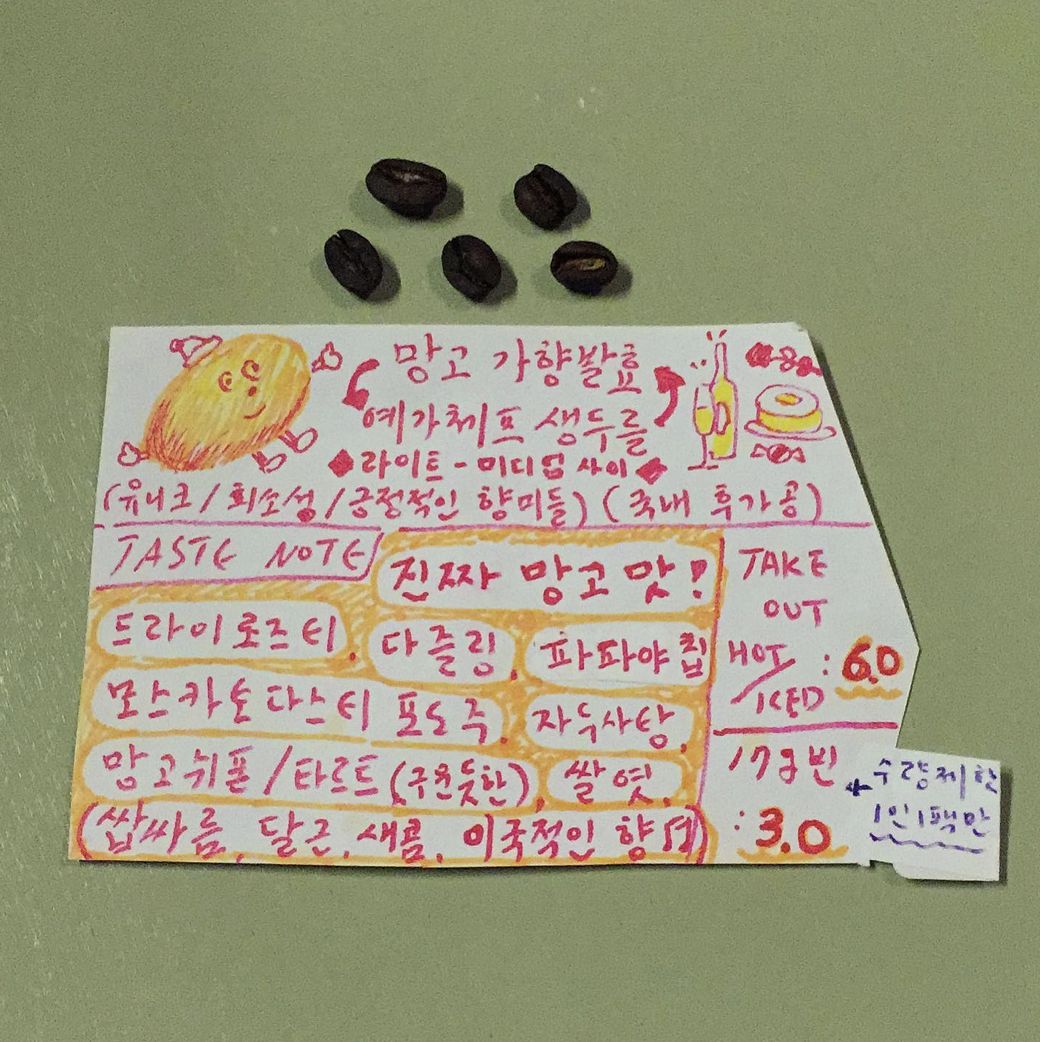 망고 가향발효
예가체프 생두를
라이트-미디엄 사이
(유니크/희소성/긍정적인 향미들) (국내 후가공)
TASTE NOTE
진짜 망고 맛!
드라이로즈티,
다즐링,
파파야칩
모스카토다스티 포도주,
자두사탕,
망고쉬폰/타르트(구운듯한),
쌀엿,
(쌉싸름, 달근, 새콤, 이국적인 향미)
TAKE
OUT
HOT/ICED : 6.0
17g빈
: 3.0
수량제한
1인1팩만